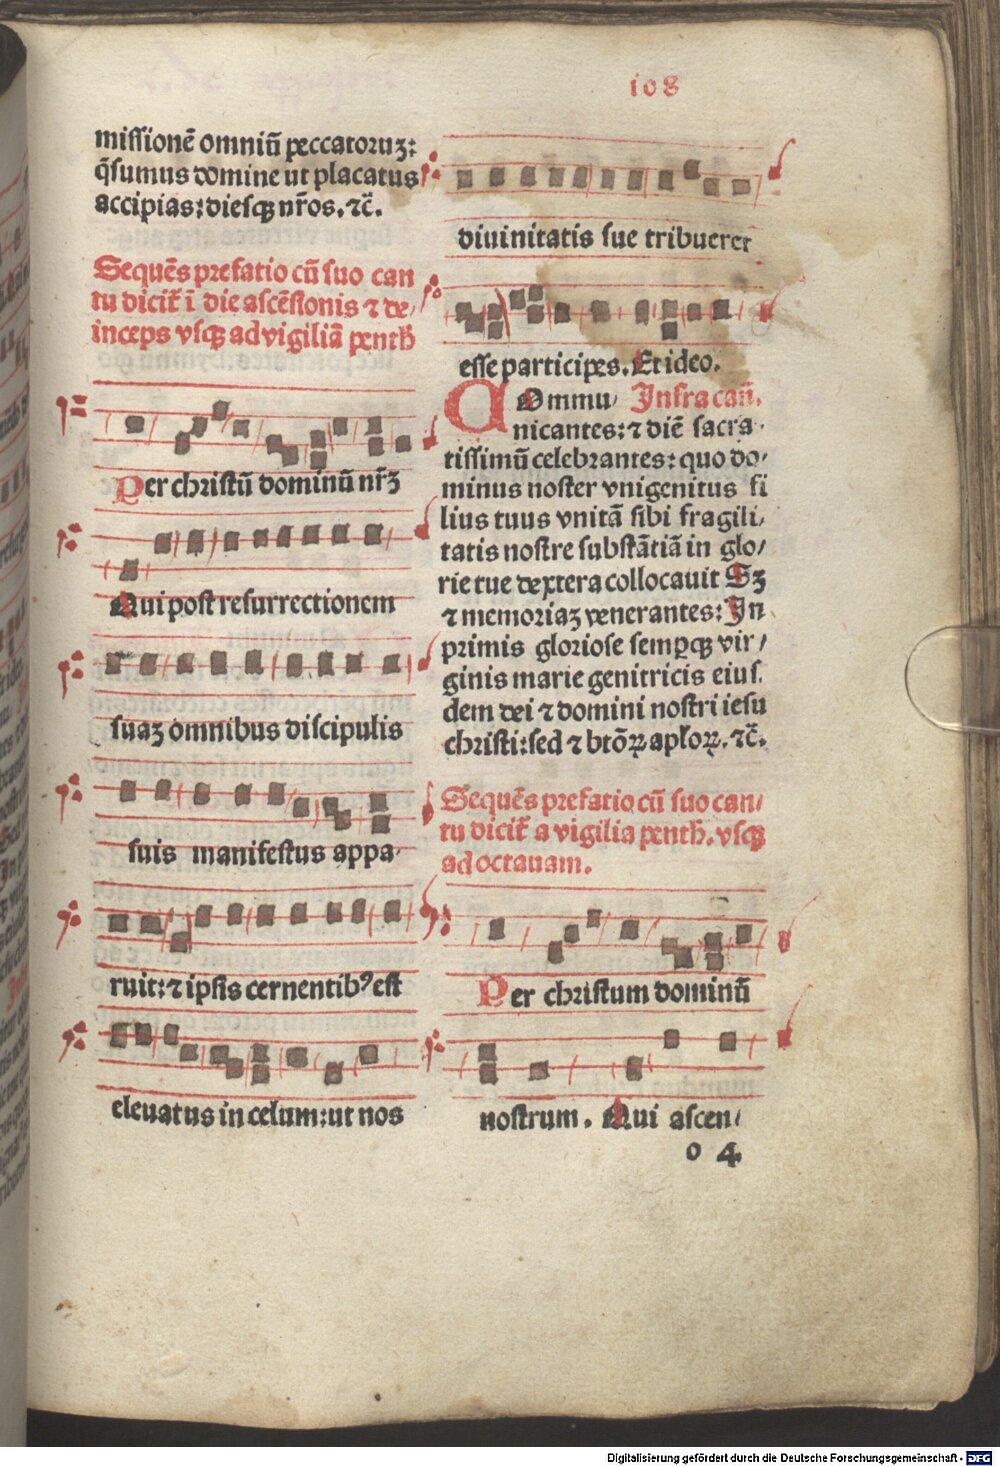 108
missionē omniū peccatoruꝫ:
q̄sumus domine ut placatus
accipias: diesqꝫ nr̄os. ⁊c̄.
Sequēs prefatio cū suo can
tu dicit̄ ī die ascēsionis ⁊ de/
inceps vsqꝫ ad vigiliā penth̄
Per christū dominū nr̄ꝫ
Qui post resurrectionem
suaꝫ omnibus discipulis
suis manifestus appa/
ruit: ⁊ ipsis cernentibꝰ est
eleuatus in celum: ut nos
diuinitatis sue tribueret
esse participes. Et ideo.
COmmu/ Infra cañ.
nicantes: ⁊ diē sacra/
tissimū celebrantes: quo do/
minus noster vnigenitus fi
lius tuus vnitā sibi fragili/
tatis nostre substātiā in glo/
rie tue dextera collocauit Sꝫ
⁊ memoriaꝫ venerantes: In
primis gloriose sempꝙꝫ vir/
ginis marie genitricis eius.
dem dei ⁊ domini nostri iesu
christi: sed ⁊ btōꝝ apl̄oꝝ. ⁊c̄.
Sequēs prefatio cū suo can/
tu dicit̄ a vigilia penth̄. vsqꝫ
ad octauam.
Per christum dominū
nostrum. Qui ascen/
o 4
Digitalisierung gefördert durch die Deutsche Forschungsgemeinschaft - DFG